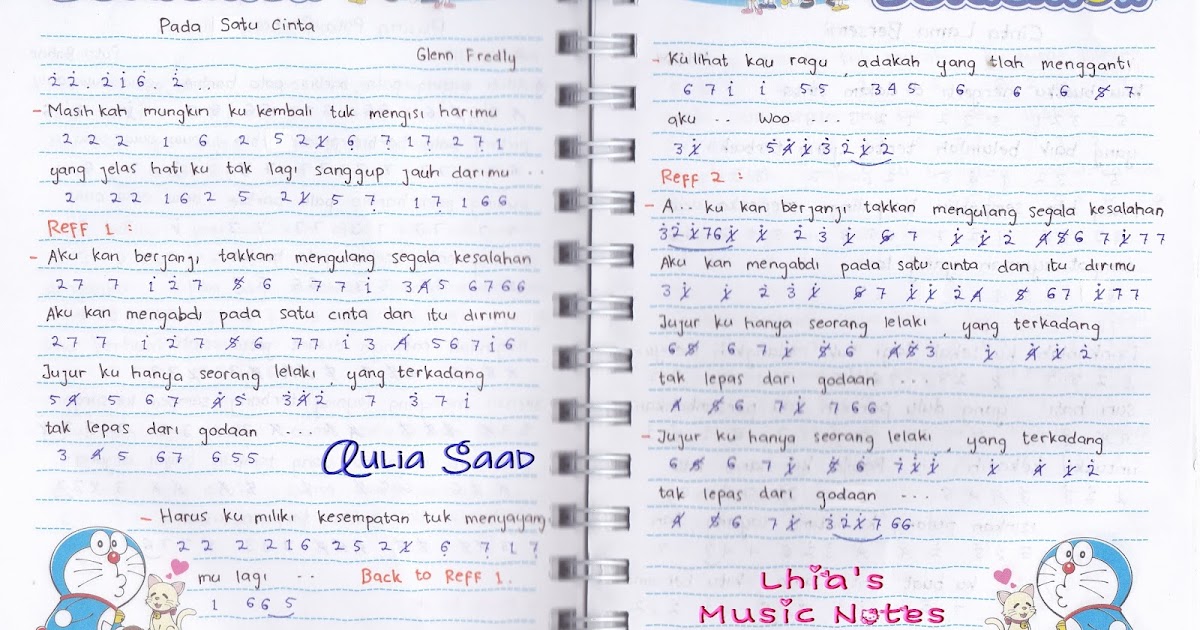 Pada Satu Cinta
Glenn Fredly
2 2 . 2 1 6 . 2 . .
- Masih kah mungkin ku kembali tuk mengisi harimu
2 2 2 1 6 2 5 2 1 6 7 1 7 2 7 1
yang jelas hati ku tak lagi sanggup jauh darimu . .
2 2 2 1 6 2 5 2 1 5 7 1 7 1 6 6
Reff 1 :
- Aku kan berjanji takkan mengulang segala kesalahan
2 7 7 1 2 7 5 6 7 7 1 3 4 5 6 7 6 6
Aku kan mengabdi pada satu cinta dan itu dirimu
2 7 7 1 2 7 5 6 7 7 1 3 4 5 6 7 1 6
Jujur ku hanya seorang lelaki , yang terkadang
5 4 5 6 7 4 5 3 4 2 7 3 7 1
tak lepas dari godaan . . . .
3 4 5 6 7 6 5 5
Aulia Saad
- Harus ku miliki kesempatan tuk menyayang
2 2 2 2 1 6 2 5 2 1 6 7 1 7
mu lagi . . Back to Reff 1 .
1 6 6 5
- Ku lihat kau ragu , adakah yang tlah mengganti
6 7 1 1 5 5 3 4 5 6 6 6 5 7
aku . . Woo . . .
3 1 5 4 1 3 2 1 2
Reff 2 :
- A . . ku kan berjanji takkan mengulang segala kesalahan
3 2 1 7 6 1 1 2 3 1 6 7 1 1 2 4 5 6 7 1 7 7
Aku kan mengabdi pada satu cinta dan itu dirimu
3 1 1 2 3 1 6 7 1 1 2 4 5 6 7 1 7 7
Jujur ku hanya seorang lelaki , yang terkadang
6 5 6 7 1 5 6 4 5 3 1 4 1 2
tak lepas dari godaan . . . .
4 5 6 7 1 7 6 6
- Jujur ku hanya seorang lelaki , yang terkadang
6 5 6 7 1 5 6 7 1 1 1 4 1 2
tak lepas dari godaan . . .
4 5 6 7 1 3 2 1 7 6 6
Lhia's
Music Notes